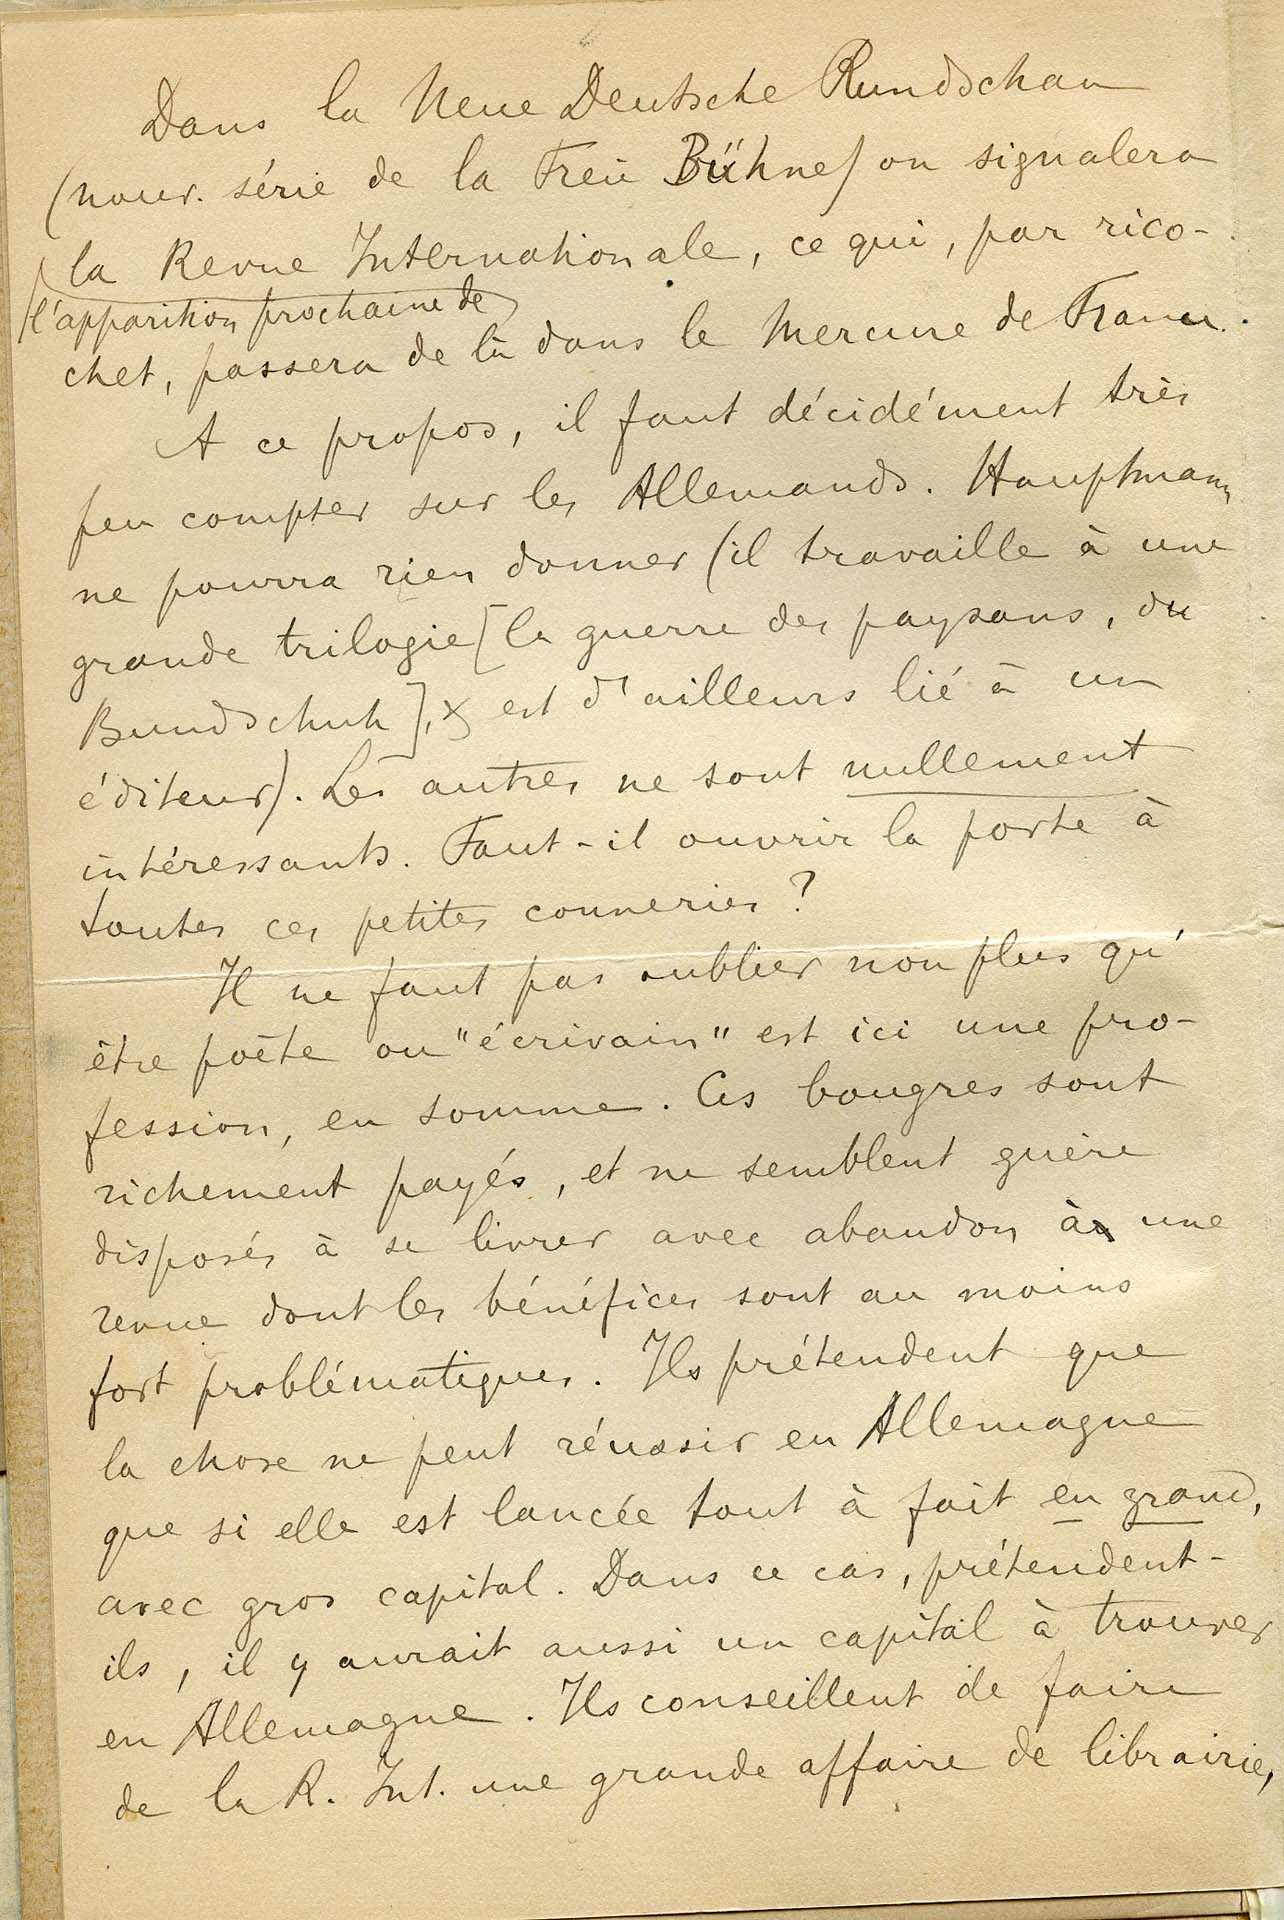 Dans la Neue Deutsche Rundschau
(nouv. série de la Freie Bühne) on signalera
la Revue Internationale, ce qui, par rico-
l'apparition prochaine de
chet, passera de là dans le Mercure de France.
A ce propos, il faut décidément très
peu compter sur les Allemands. Hauptmann
ne pourra rien donner (il travaille à une
grande trilogie [la guerre des paysans, du
Bundschuh], & est d'ailleurs lié à un
éditeur). Les autres ne sont nullement
intéressants. Faut-il ouvrir la porte à
toutes ces petites conneries ?
Il ne faut pas oublier non plus qu'
être poète ou "écrivain" est ici une pro-
fession, en somme. Ces bougres sont
richement payés, et ne semblent guère
disposés à se livrer avec abandon à une
revue dont les bénéfices sont au moins
fort problématiques. Ils prétendent que
la chose ne peut réussir en Allemagne
que si elle est lancée tout à fait en grand,
avec gros capital. Dans ce cas, prétendent-
ils, il y aurait aussi un capital à trouver
en Allemagne. Ils conseillent de faire
de la R. Int. une grande affaire de librairie,